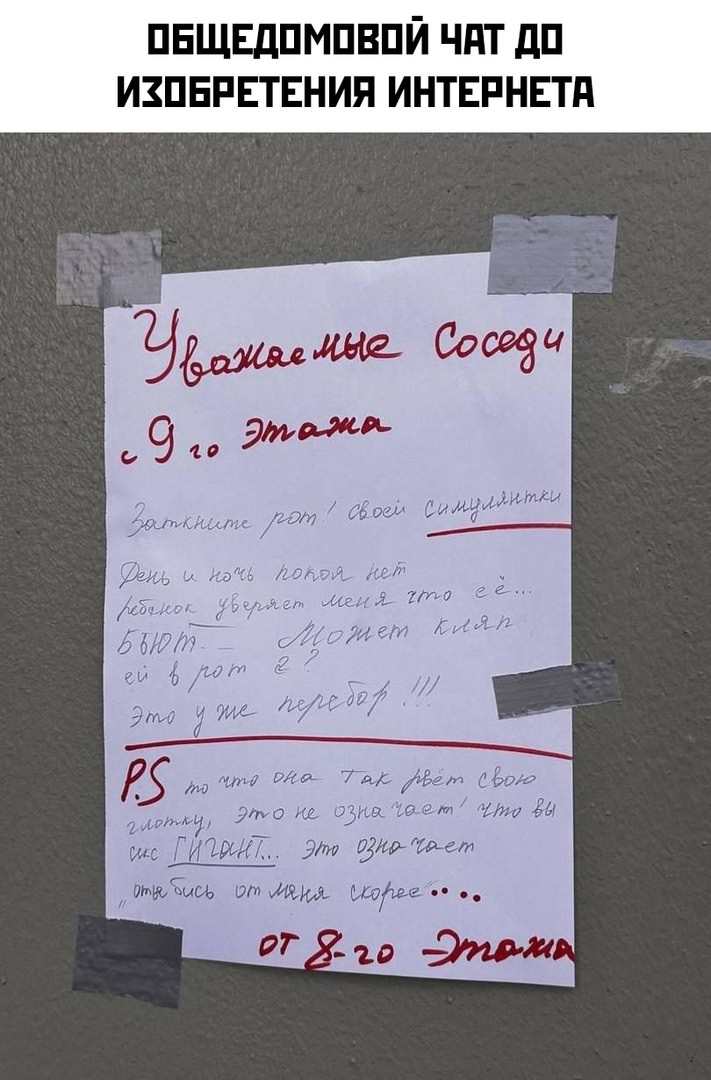 ОБЩЕДОМОВОЙ ЧАТ ДО
ИЗОБРЕТЕНИЯ ИНТЕРНЕТА
Уважаемые Соседи
с 9 го Этажа
Заткните рот! своей симулянтки
День и ночь покоя нет
ребёнок уверяет меня что её...
БЬЮТ... Может кляп
ей в рот ?
Это уже перебор!!!
P.S то что она так рвёт свою
глотку, это не означает! что вы
секс ГИГАНТ... это означает
"отъебись от меня скорее"....
от 8-го Этажа